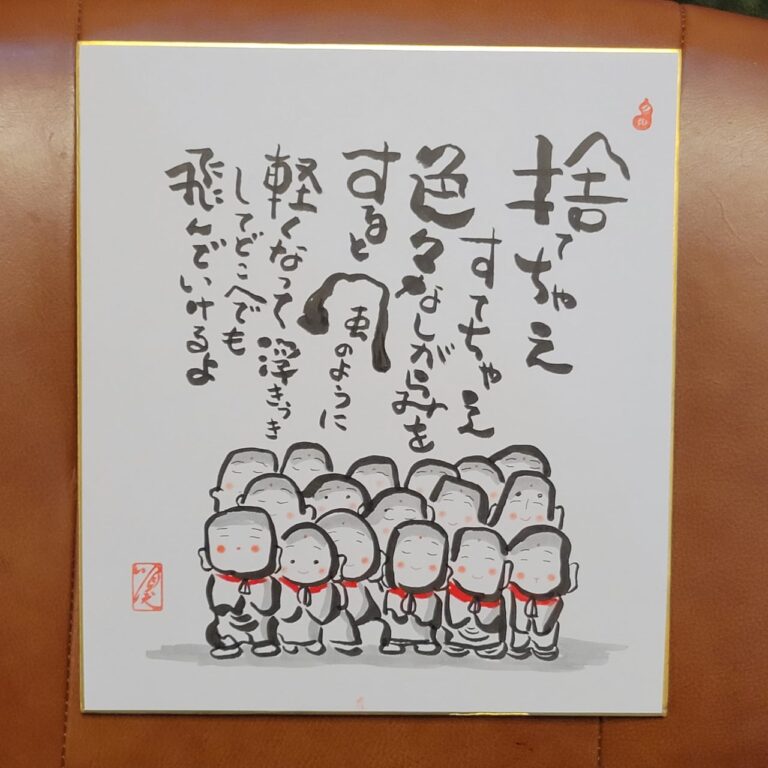 捨てちゃえ
すてちゃえ
色々なしがらみを
すると
風のように
軽くなって浮きうき
してどこへでも
飛んでいけるよ